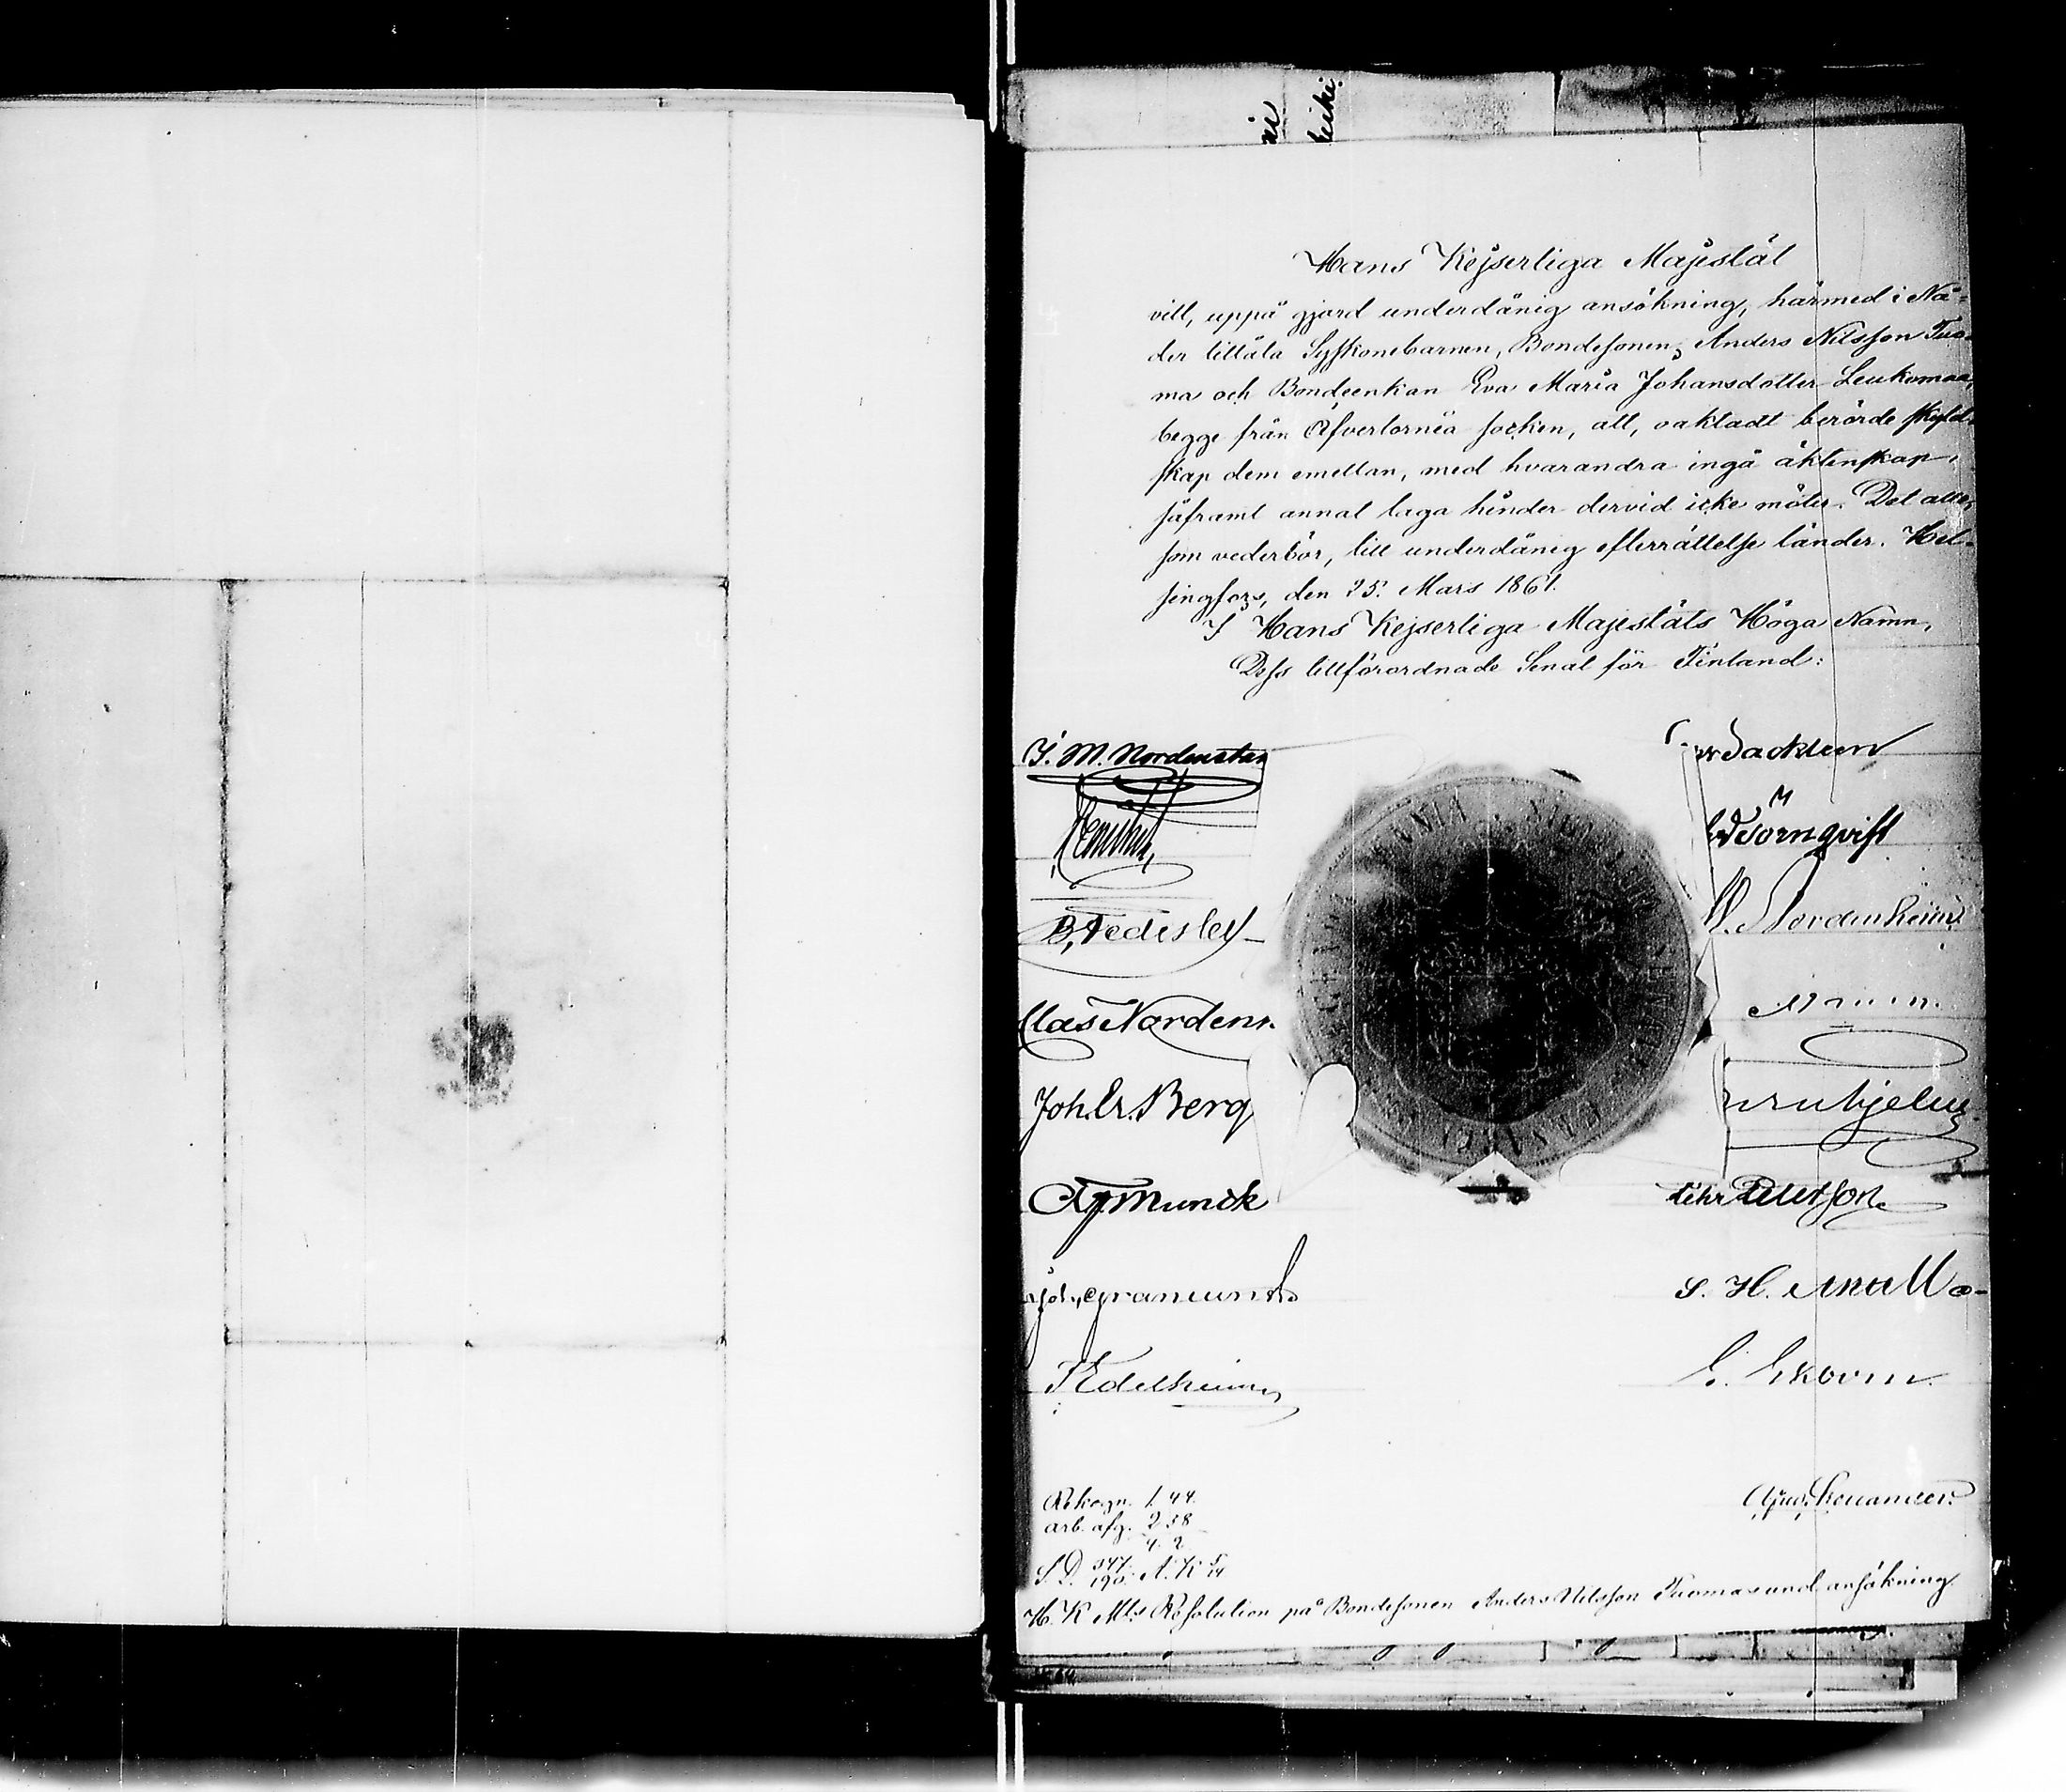 Hans Kejserliga Majestät
vill, uppå gjord underdånig ansökning, härmed i Nå=
der tillåta Syskonebarnen, Bondesonen Anders Nilsson Tuo-
ma och Bondeenkan Eva Maria Johansdotter Leukomaa,
begge från Öfvertorneå socken, att, oaktadt berörde skyld-
skap dem emellan, med hvarandra ingå äktenskap,
såframt annat laga hinder dervid icke möter. Det alle,
som vederbör, till underdånig efterrättelse länder. Hel-
singfors, den 25. Mars 1861.
I Hans Kejserliga Majestäts Höga Namn,
Dess tillförordnade Senat för Finland:
J. M. Nordenstam
B. Federley
W. Nordenheim
Clas Nordens.
Joh. Er. Berg
Munck
S. H. Antell
Edelheim
E. Ekbom
Rekogn. 1.44.
arb. afg. 2.58
4. 2
S. D. 347. 190. A. K. 5/14
H. K. Mts Resolution på Bondesonen Anders Nilsson Tuomas und. ansökning.